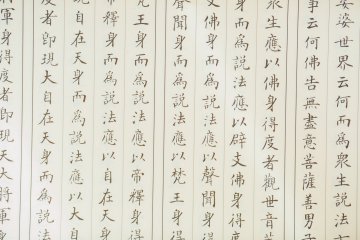 娑婆世界云何而為衆生說法
事云何佛告無盡意菩薩善男子
衆生應以佛身得度者觀世音
佛身而為說法應以辟支佛身得
支佛身而為說法應以聲聞身得
聲聞身而為說法應以梵王身得
梵王身而為說法應以帝釋身得
帝釋身而為說法應以自在天
現自在天身而為說法應以大自
度者即現大自在天身而為說法
將軍身得度者即現天大將軍身